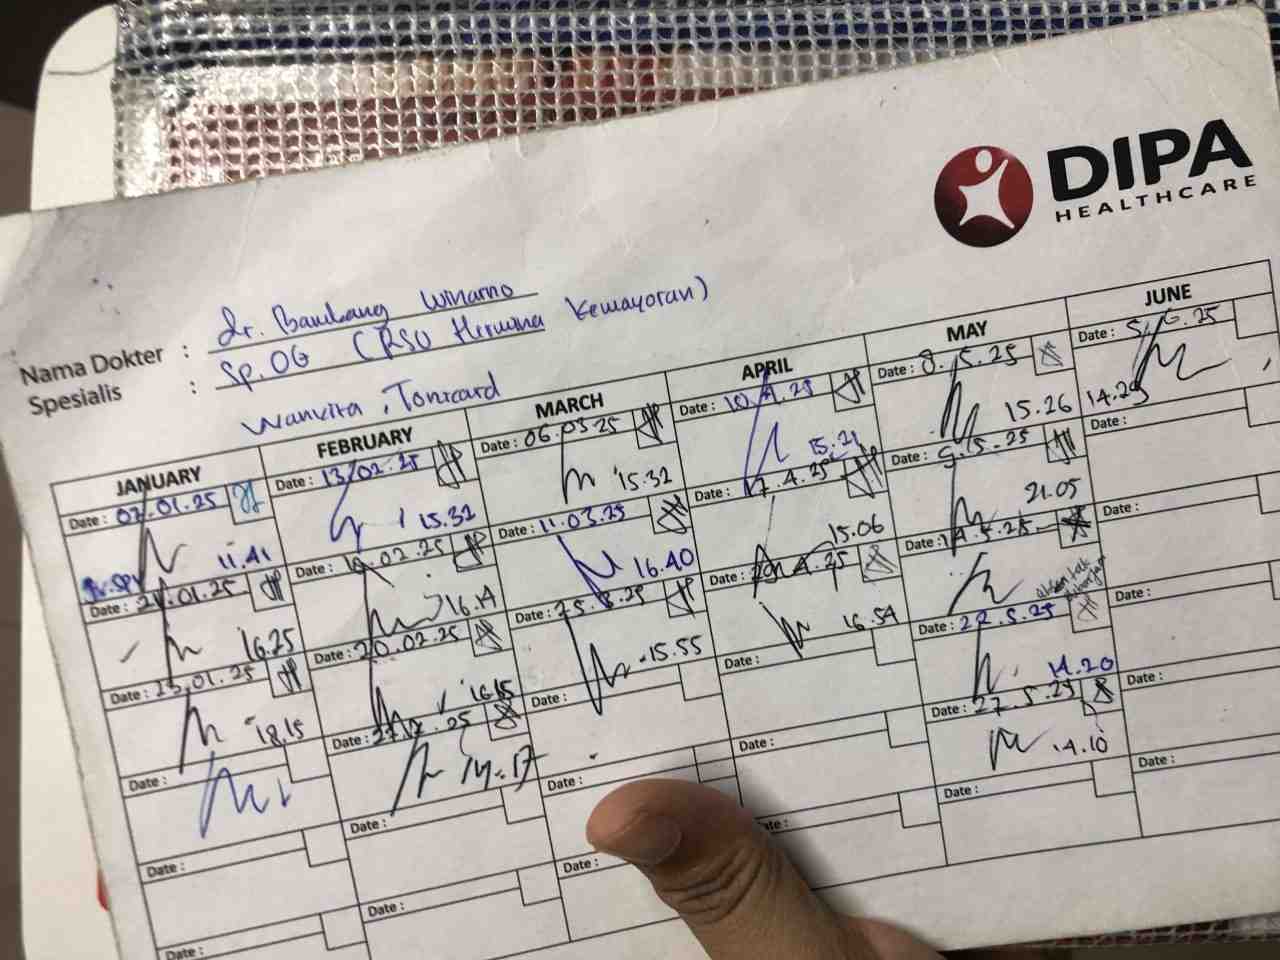 DIPA
HEALTHCARE
Nama Dokter : dr. Bambang Winarno
Spesialis : Sp.OG (RSU Hermina Kemayoran)
Wankita, Tonicard
JANUARY
Date : 02.01.25
11.41
Date : 21.01.25
16.25
Date : 23.01.25
18.15
Date :
Date :
Date :
FEBRUARY
Date : 13/02.25
15.32
Date : 02.25
16.14
Date : 20.02.25
16.15
Date : 25
14.17
Date :
Date :
MARCH
Date : 06.03.25
15.32
Date : 11.03.25
16.40
Date : 25.3.25
15.55
Date :
Date :
Date :
APRIL
Date : 10.4.25
15.21
Date : 17.4.25
15.06
Date : 29.4.25
16.54
Date :
Date :
ate :
MAY
Date : 8.5.25
15.26
Date : 9.5.25
21.05
Date : 14.5.25
Date : 22.5.25
14.20
Date : 27.5.25
14.10
Date :
JUNE
Date : 5.6.25
14.29
Date :
Date :
Date :
Date :
Date :